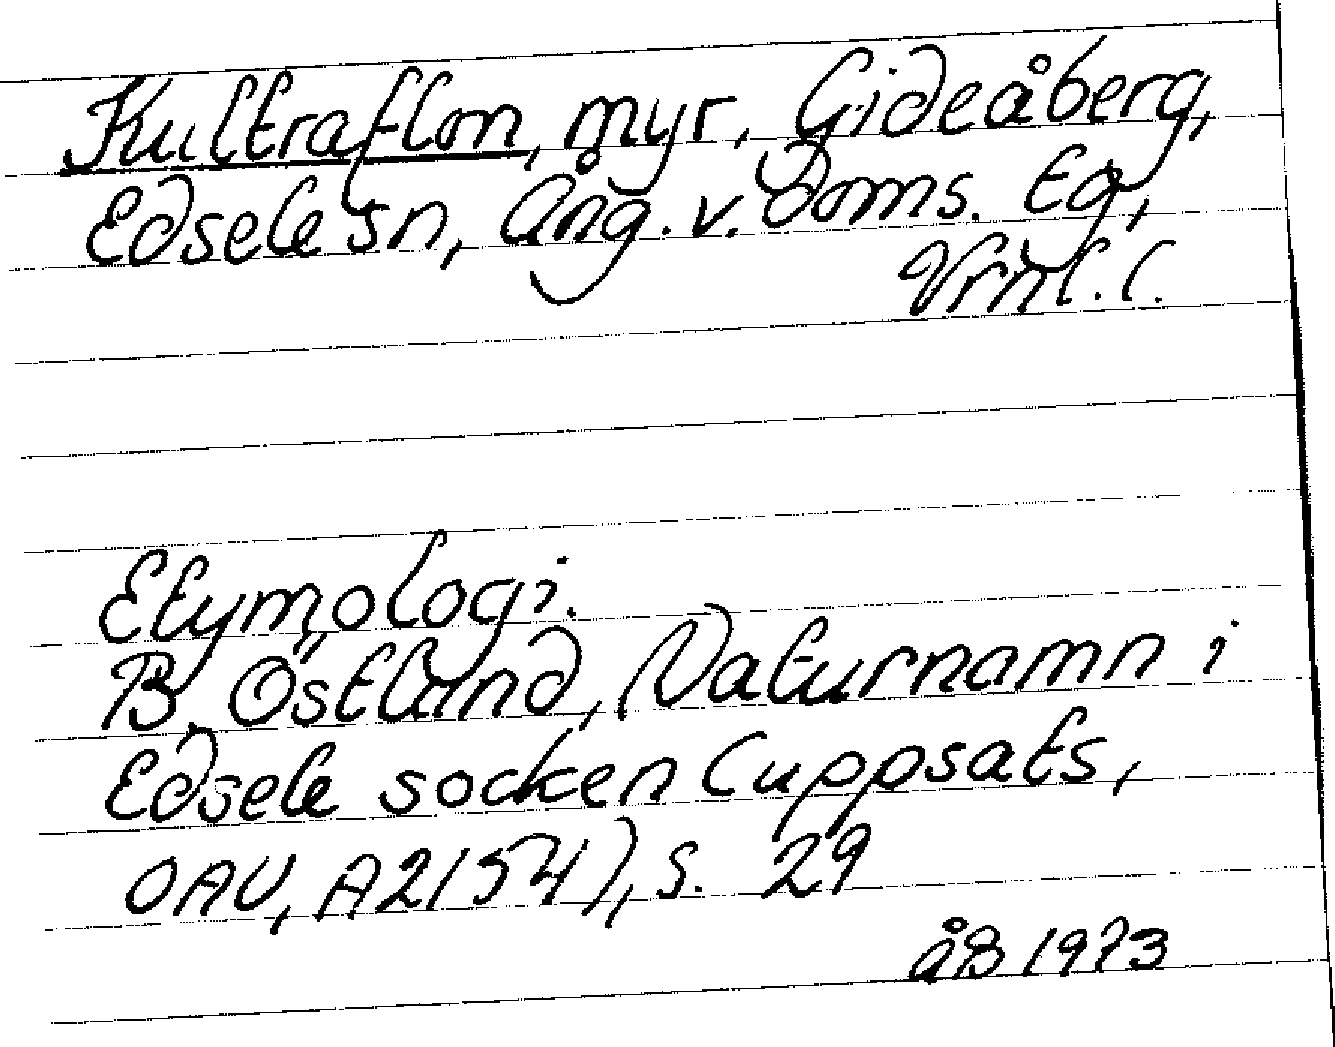 Kultraflon, myr, Gideåberg,
Edsele sn, Ång. v. Doms. tg,
Vrnl. l.
Etymologi.
B. Östlund, Naturnamn i
Edsele socken (uppsats,
OAU, A2154), s. 29
åB 1973